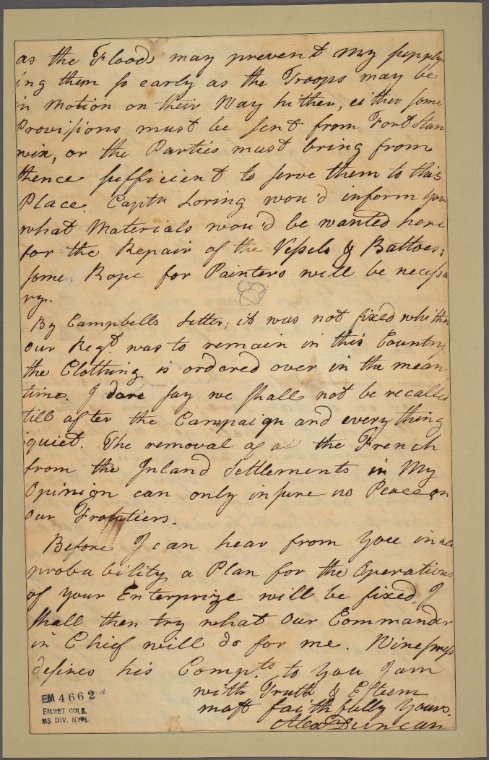 as the Floods may prevent My supply
ing them so early as the Troops may be
in Motion on their Way hither, either some
Provisions must be sent from Fort Stan
wix, or the Parties must bring from
thence sufficient to serve them to this
Place. Captn Loring wou'd inform you
what Materials wou'd be wanted here
for the Repair of the Vessels & Battoes;
some Rope for Painters will be necessa
ry.
By Campbells Letter, it was not fixed whither
our Regt. was to remain in this Country
the Clothing is ordered over in the mean
time. I dare say we shall not be recalled
till after the Campaign and every thing
quiet. The removal of all the French
from the Inland Settlements in My
Opinion can only insure us Peace on
our Frontiers.
Before I can hear from You in all
probability a Plan for the Operations
of your Enterprize will be fixed. I
shall then try what Our Commander
in Chief will do for me.
desires his Compts. to You I am
with Truth & Esteem
most faithfully Yours
Alexr Duncan
EM 4662
EMMET COLL.
MS DIV. NYPL